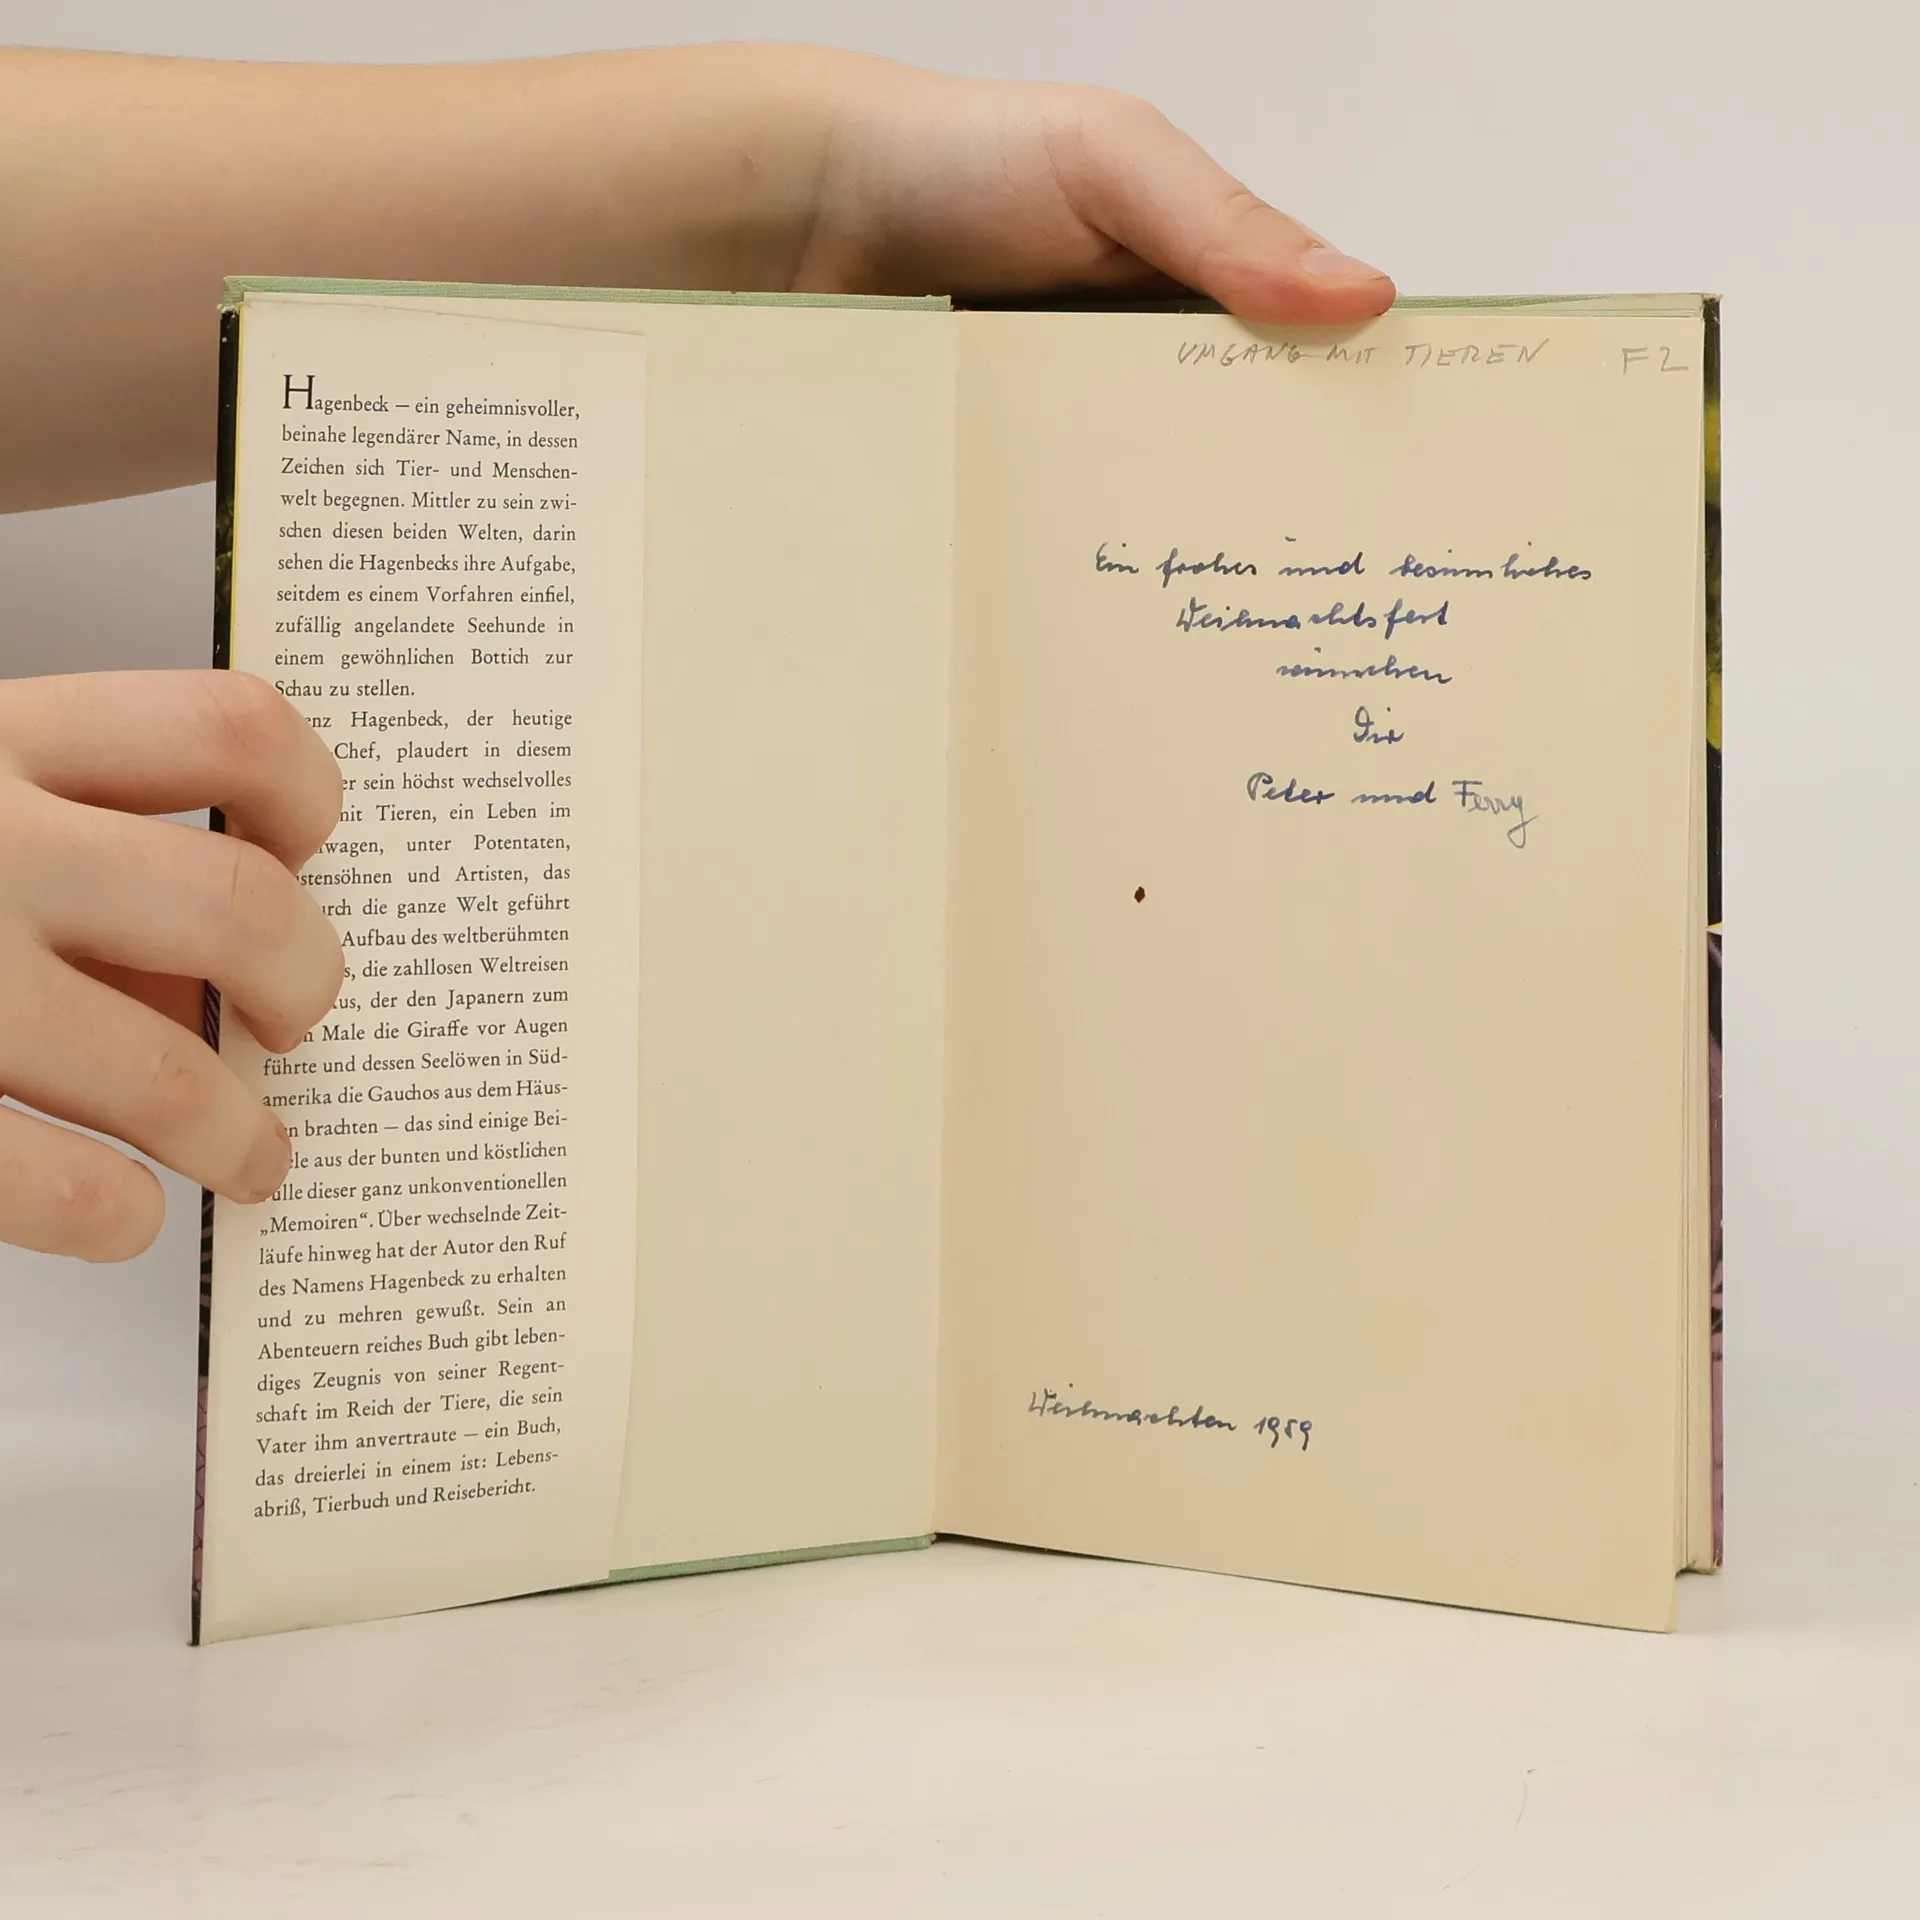 Hagenbeck – ein geheimnisvoller,
beinahe legendärer Name, in dessen
Zeichen sich Tier- und Menschen-
welt begegnen. Mittler zu sein zwi-
schen diesen beiden Welten, darin
sehen die Hagenbecks ihre Aufgabe,
seitdem es einem Vorfahren einfiel,
zufällig angelandete Seehunde in
einem gewöhnlichen Bottich zur
Schau zu stellen.
enz Hagenbeck, der heutige
Chef, plaudert in diesem
er sein höchst wechselvolles
mit Tieren, ein Leben im
wagen, unter Potentaten,
stensöhnen und Artisten, das
urch die ganze Welt geführt
Aufbau des weltberühmten
s, die zahllosen Weltreisen
kus, der den Japanern zum
n Male die Giraffe vor Augen
führte und dessen Seelöwen in Süd-
amerika die Gauchos aus dem Häus-
n brachten – das sind einige Bei-
ele aus der bunten und köstlichen
ülle dieser ganz unkonventionellen
„Memoiren“. Über wechselnde Zeit-
läufe hinweg hat der Autor den Ruf
des Namens Hagenbeck zu erhalten
und zu mehren gewußt. Sein an
Abenteuern reiches Buch gibt leben-
diges Zeugnis von seiner Regent-
schaft im Reich der Tiere, die sein
Vater ihm anvertraute – ein Buch,
das dreierlei in einem ist: Lebens-
abriß, Tierbuch und Reisebericht.
UMGANG MIT TIEREN F2
Ein frohes und besinnliches
Weihnachtsfest
wünschen
Dir
Peter und Ferry
Weihnachten 1959